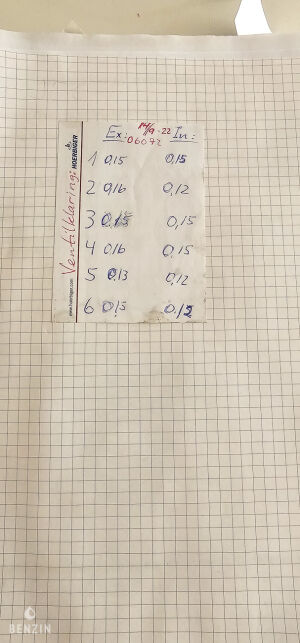 HOERBIGER
www.hoerbiger.com
Ventilklaring:
14/9-22
Ex: In:
06072
1 0,15 0,15
2 0,16 0,12
3 0,15 0,15
4 0,16 0,15
5 0,13 0,12
6 0,15 0,12
BENZIN